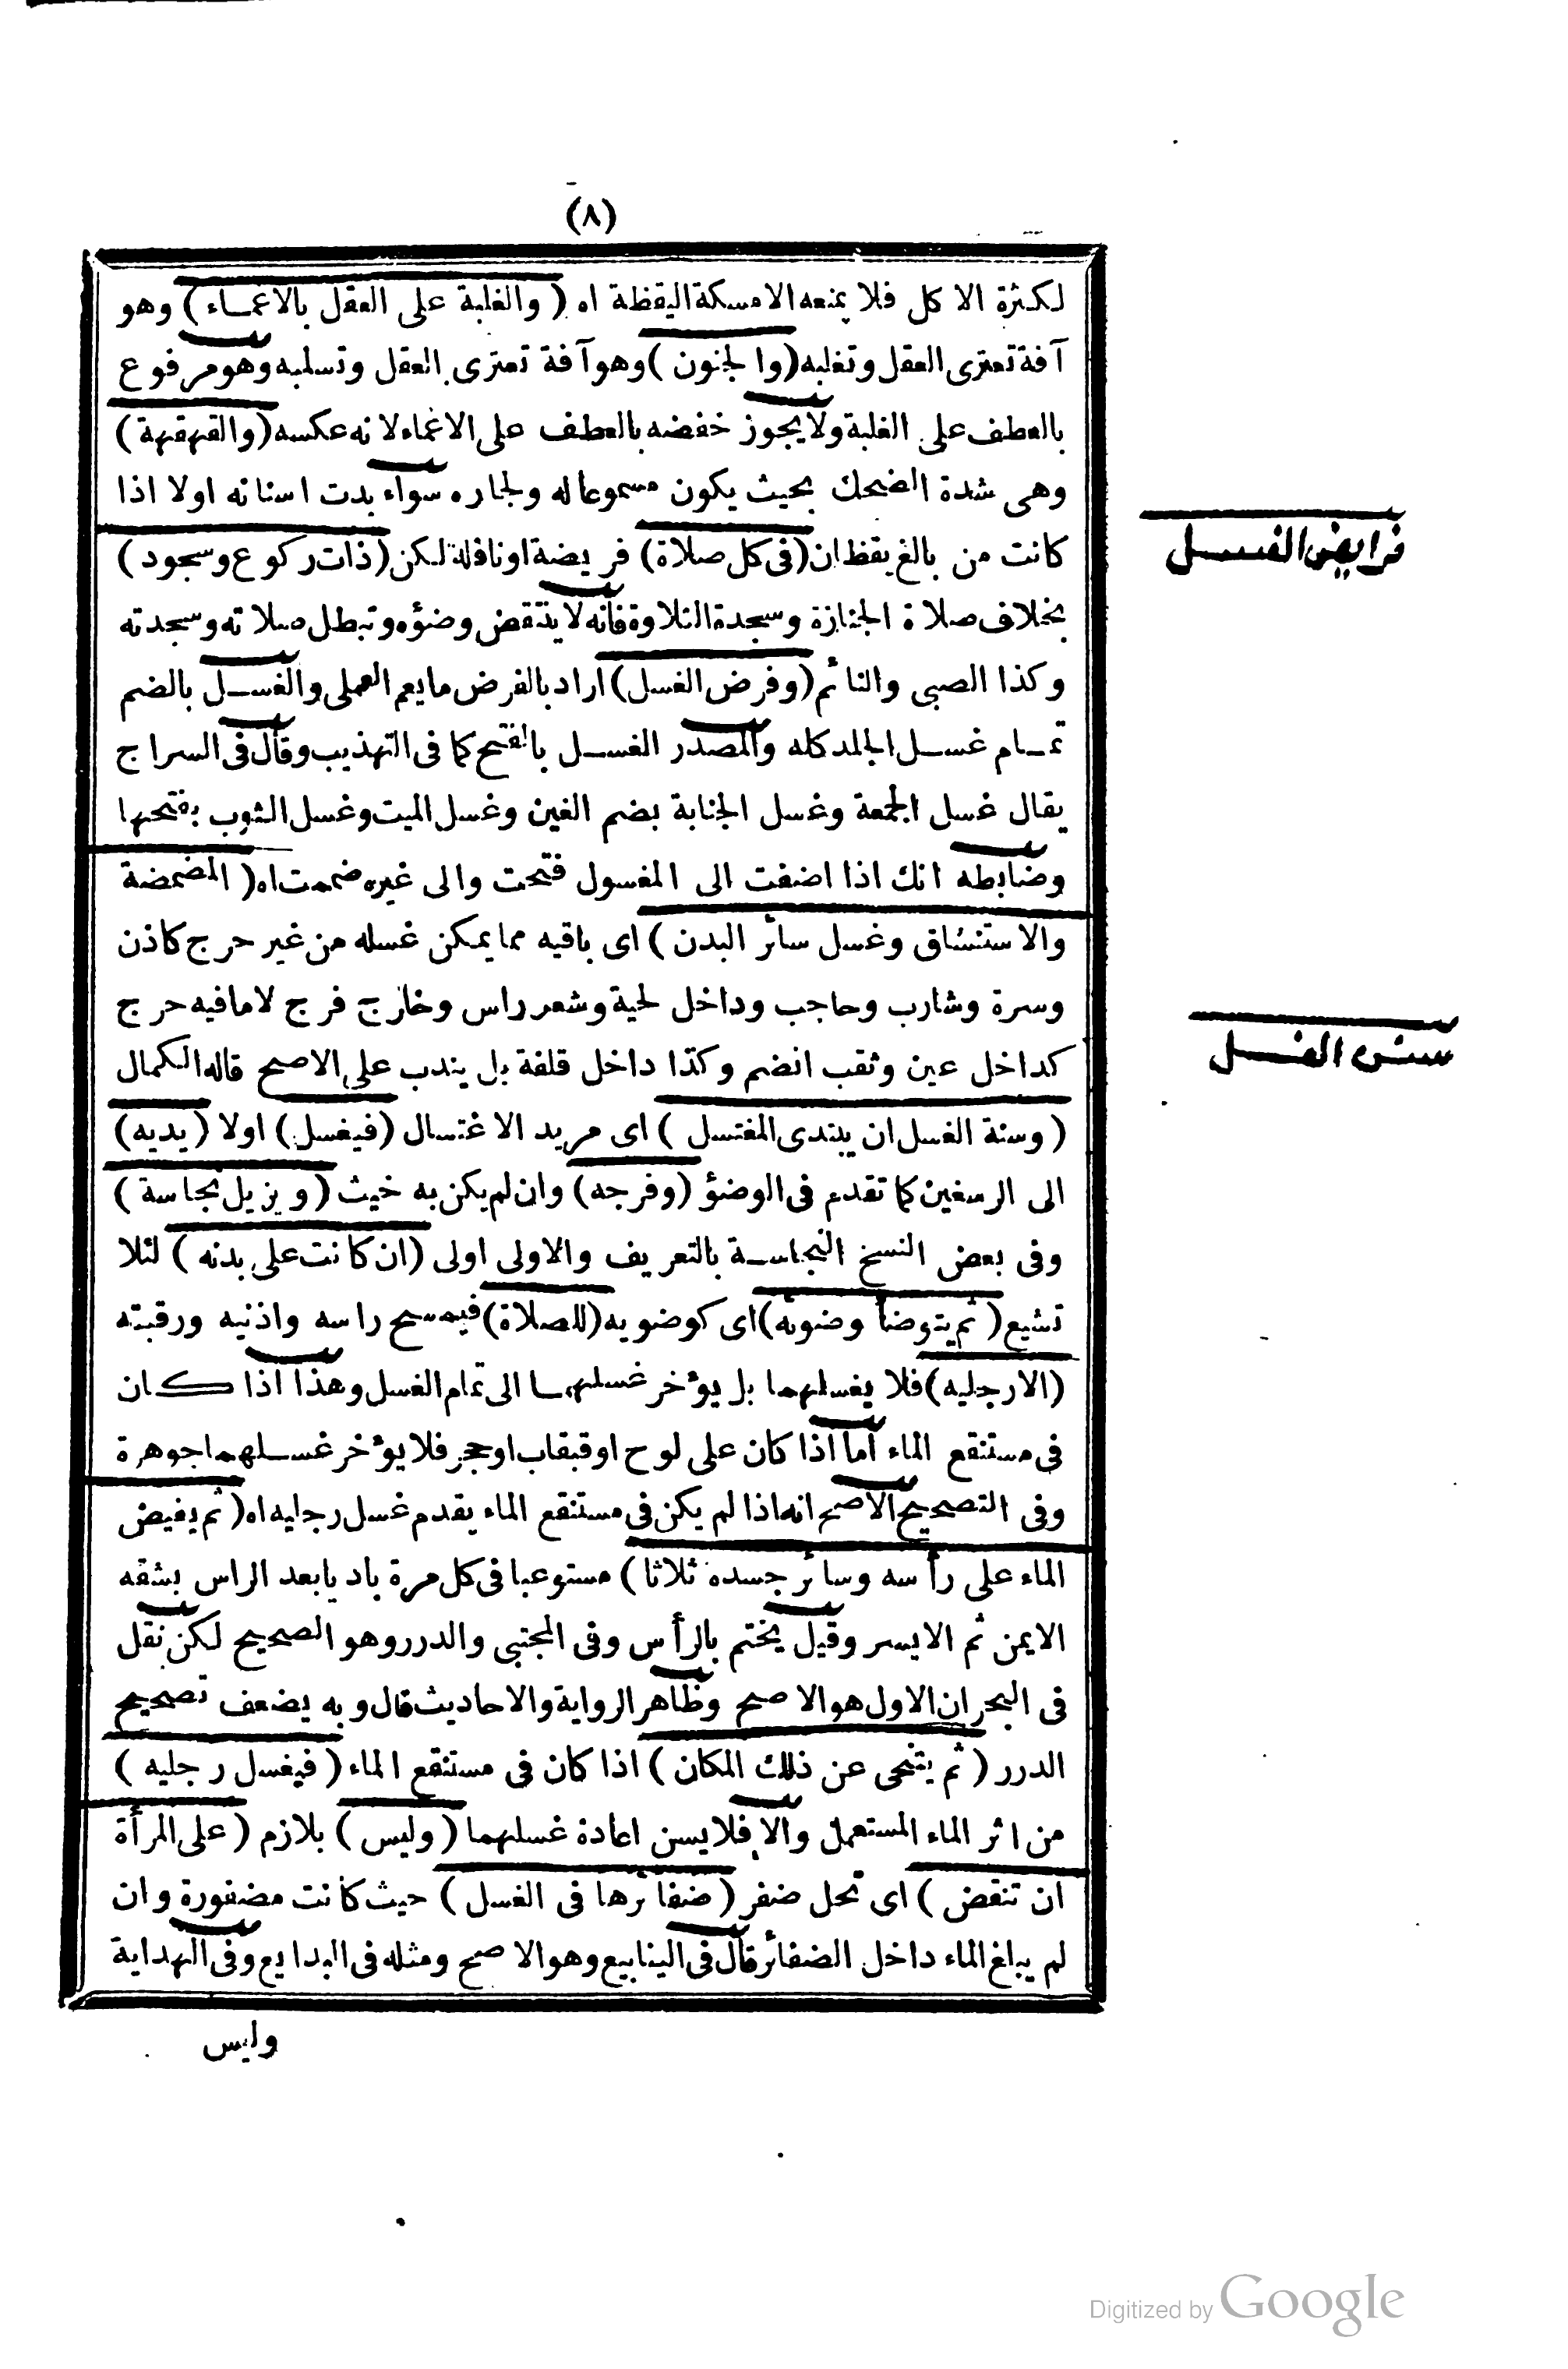 (٨)
لكثرة الاكل فلا يمنعه الامسكة اليقظة اه (والغلبة على العقل بالاغماء) وهو
آفة تعترى العقل وتغلبه (والجنون) وهو آفة تعترى العقل وتسلبه وهو مرفوع
بالعطف على الغلبة ولا يجوز خفضه بالعطف على الاغماء لانه عكسه (والقهقهة)
وهى شدة الضحك بحيث يكون مسموعا له ولجاره سواء بدت اسنانه اولا اذا
كانت من بالغ يقظان (فى كل صلاة) فريضة او نافلة لكن (ذات ركوع وسجود)
بخلاف صلاة الجنازة وسجدة التلاوة فانه لا ينتقض وضؤه وتبطل صلاته وسجدته
وكذا الصبى والنائم (وفرض الغسل) اراد بالفرض ما يعم العملى والغسل بالضم
تمام غسل الجلد كله والمصدر الغسل بالفتح كما فى التهذيب وقال فى السراج
يقال غسل الجمعة وغسل الجنابة بضم الغين وغسل الميت وغسل الثوب بفتحها
وضابطه انك اذا اضفت الى المغسول فتحت والى غيره ضممت اه (المضمضة
والاستنشاق وغسل سائر البدن) اى باقيه مما يمكن غسله من غير حرج كاذن
وسرة وشارب وحاجب وداخل لحية وشعر راس وخارج فرج لا ما فيه حرج
كداخل عين وثقب انضم وكذا داخل قلفة بل يندب على الاصح قاله الكمال
(وسنة الغسل ان يبتدى المغتسل) اى مريد الاغتسال (فيغسل) اولا (يديه)
الى الرسغين كما تقدم فى الوضؤ (وفرجه) وان لم يكن به خبث (ويزيل نجاسة)
وفى بعض النسخ النجاسة بالتعريف والاولى اولى (ان كانت على بدنه) لئلا
تشيع (ثم يتوضأ وضوئه) اى كوضويه (للصلاة) فيمسح راسه واذنيه ورقبته
(الارجليه) فلا يغسلهما بل يؤخر غسلهما الى تمام الغسل وهذا اذا كان
فى مستنقع الماء اما اذا كان على لوح اوقبقاب اوحجر فلا يؤخر غسلهما جوهرة
وفى التصحيح الاصح انه اذا لم يكن فى مستنقع الماء يقدم غسل رجليه اه (ثم يفيض
الماء على رأسه وسائر جسده ثلاثا) مستوعبا فى كل مرة باديا بعد الراس بشقه
الايمن ثم الايسر وقيل يختم بالرأس وفى المجتبى والدرر وهو الصحيح لكن نقل
فى البحر ان الاول هو الاصح وظاهر الرواية والاحاديث قال وبه يضعف تصحيح
الدرر (ثم يتنحى عن ذلك المكان) اذا كان فى مستنقع الماء (فيغسل رجليه)
من اثر الماء المستعمل والا فلا يسن اعادة غسلهما (وليس) بلازم (على المرأة
ان تنقض) اى تحل ضفر (ضفائرها فى الغسل) حيث كانت مضفورة وان
لم يبلغ الماء داخل الضفائر قال فى الينابيع وهو الاصح ومثله فى البدايع وفى الهداية
وليس
فرايض الغسل
سنن الغسل
Digitized by Google